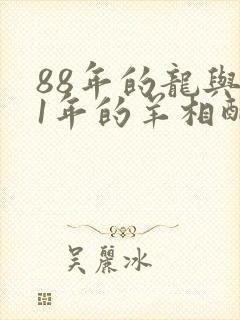 88年的龍與
1年的羊相酉
吳麗冰